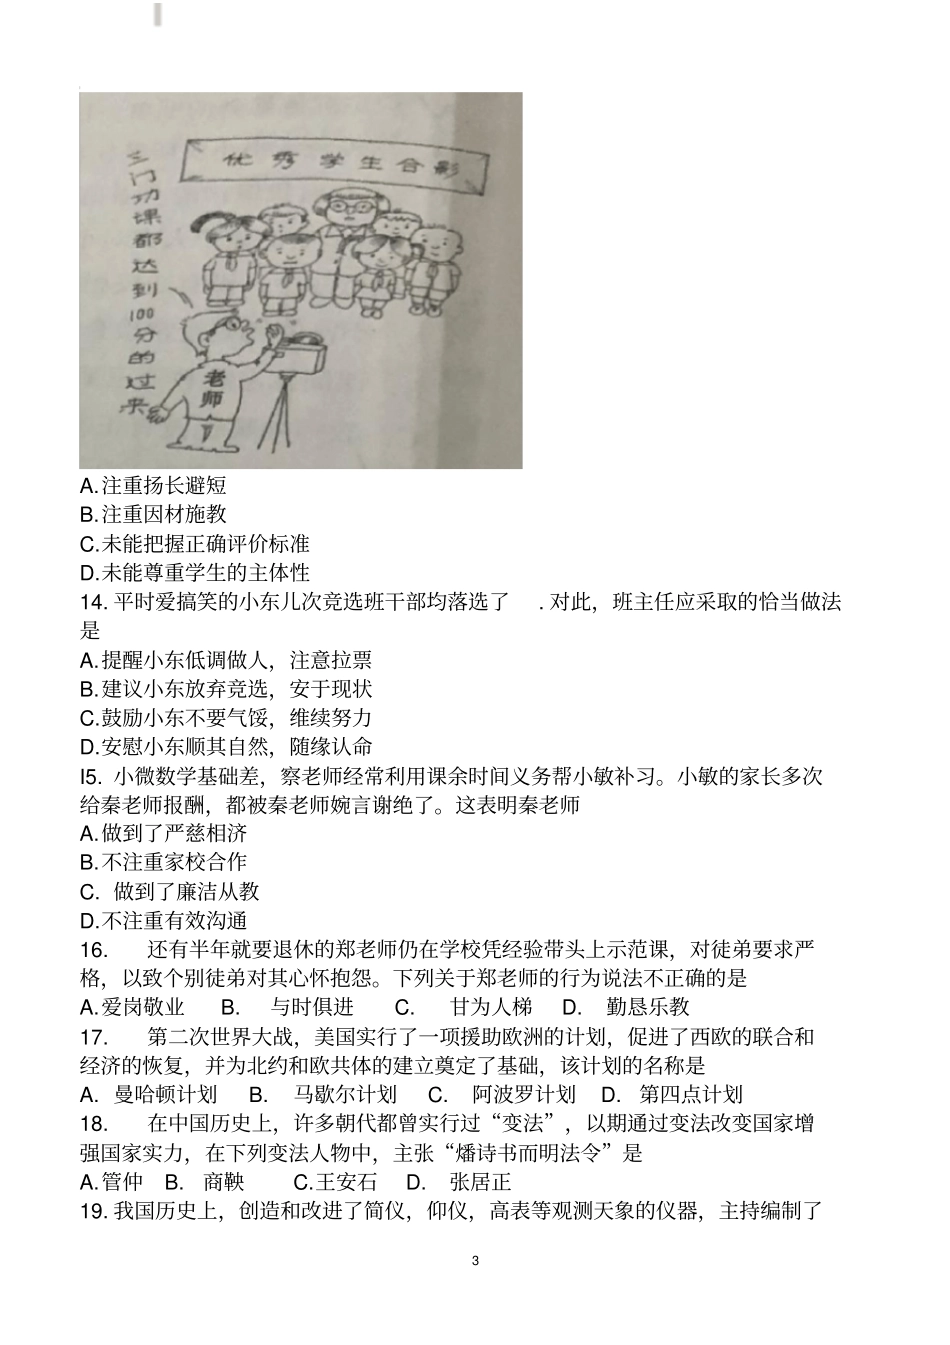 优秀学生合影
三门功课都达到100分的过来
老师
A.注重扬长避短
B.注重因材施教
C.未能把握正确评价标准
D.未能尊重学生的主体性
14. 平时爱搞笑的小东儿次竞选班干部均落选了 . 对此，班主任应采取的恰当做法
是
A.提醒小东低调做人，注意拉票
B.建议小东放弃竞选，安于现状
C.鼓励小东不要气馁，维续努力
D.安慰小东顺其自然，随缘认命
I5. 小微数学基础差，察老师经常利用课余时间义务帮小敏补习。小敏的家长多次
给秦老师报酬，都被秦老师婉言谢绝了。这表明秦老师
A.做到了严慈相济
B.不注重家校合作
C. 做到了廉洁从教
D.不注重有效沟通
16. 还有半年就要退休的郑老师仍在学校凭经验带头上示范课，对徒弟要求严
格，以致个别徒弟对其心怀抱怨。下列关于郑老师的行为说法不正确的是
A.爱岗敬业 B. 与时俱进 C. 甘为人梯 D. 勤恳乐教
17. 第二次世界大战，美国实行了一项援助欧洲的计划，促进了西欧的联合和
经济的恢复，并为北约和欧共体的建立奠定了基础，该计划的名称是
A. 曼哈顿计划 B. 马歇尔计划 C. 阿波罗计划 D. 第四点计划
18. 在中国历史上，许多朝代都曾实行过“变法”，以期通过变法改变国家增
强国家实力，在下列变法人物中，主张“燔诗书而明法令”是
A.管仲 B. 商鞅 C.王安石 D. 张居正
19. 我国历史上，创造和改进了简仪，仰仪，高表等观测天象的仪器，主持编制了
3